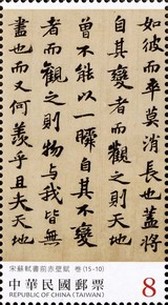 如彼而卒莫消長也蓋將
自其變者而觀之則天地
曾不能以一瞬自其不變
者而觀之則物與我皆無
盡也而又何羨乎且夫天地
宋蘇軾書前赤壁賦 卷(15-10)
中華民國郵票
REPUBLIC OF CHINA (TAIWAN)
8